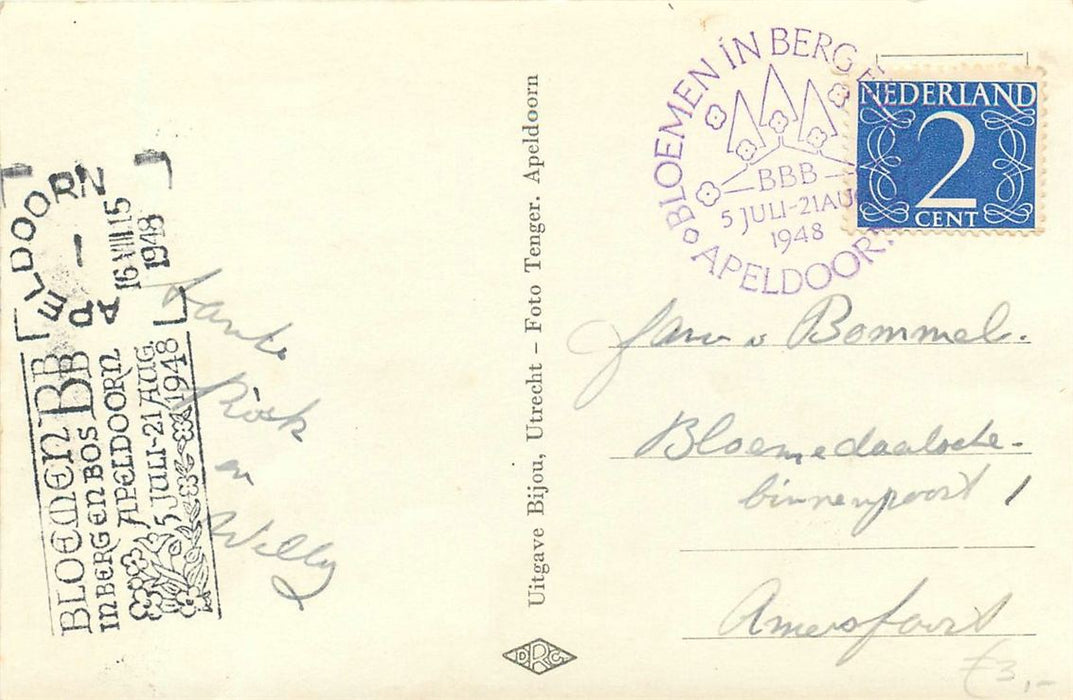 BLOEMEN IN BERG E
BBB
5 JULI-21AUG
1948
APELDOORN
NEDERLAND
2
CENT
APELDOORN
1
16.VIII.15
1948
BLOEMEN BB
IN BERG EN BOS BB
APELDOORN
5 JULI-21 AUG.
1948
Tante
Riek
en
Willy
Uitgave Bijou, Utrecht - Foto Tenger. Apeldoorn
Jan v Bommel.
Bloemedaalsche-
binnenpoort 1
Amersfoort
€3,-
DRC